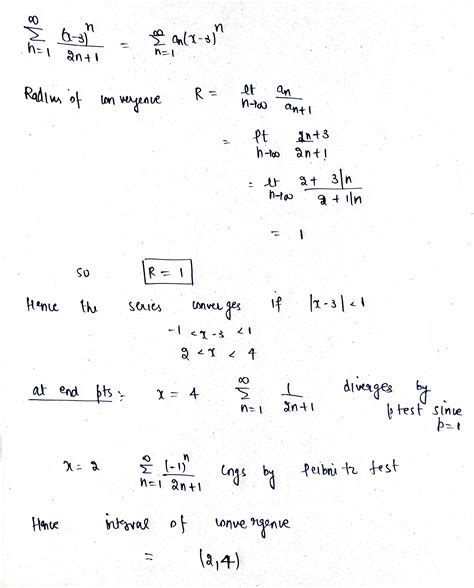 ∞ Σ n=1 (x-3)^n / 2n+1 = ∞ Σ n=1 an(x-3)^n
Radius of convergence R = lt n→∞ an / an+1
= lt n→∞ 2n+3 / 2n+1
= lt n→∞ 2 + 3/n / 2 + 1/n
= 1
so R = 1
Hence the series converges if |x-3| < 1
-1 < x-3 < 1
2 < x < 4
at end pts:- x = 4 ∞ Σ n=1 1 / 2n+1 diverges by
p test since
p=1
x = 2 ∞ Σ n=1 (-1)^n / 2n+1 cngs by leibnitz test
Hence interval of convergence
= (2,4)